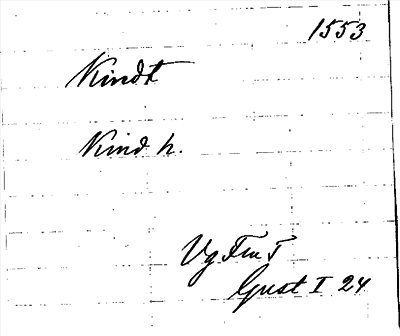 1553
Kindt
Kind h.
Vg Fru T
Gust I 24